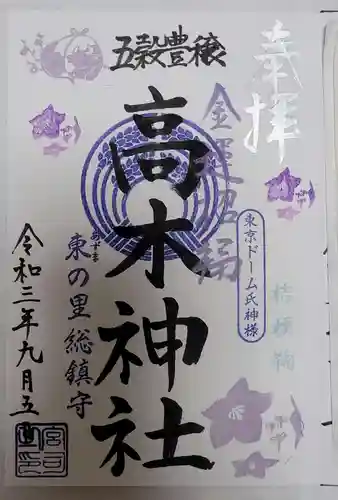 奉拝
五穀豊穣
金運招福
高木神社
東京ドーム氏神様
桔梗
あずま
東の里総鎮守
令和三年九月五日
宮司